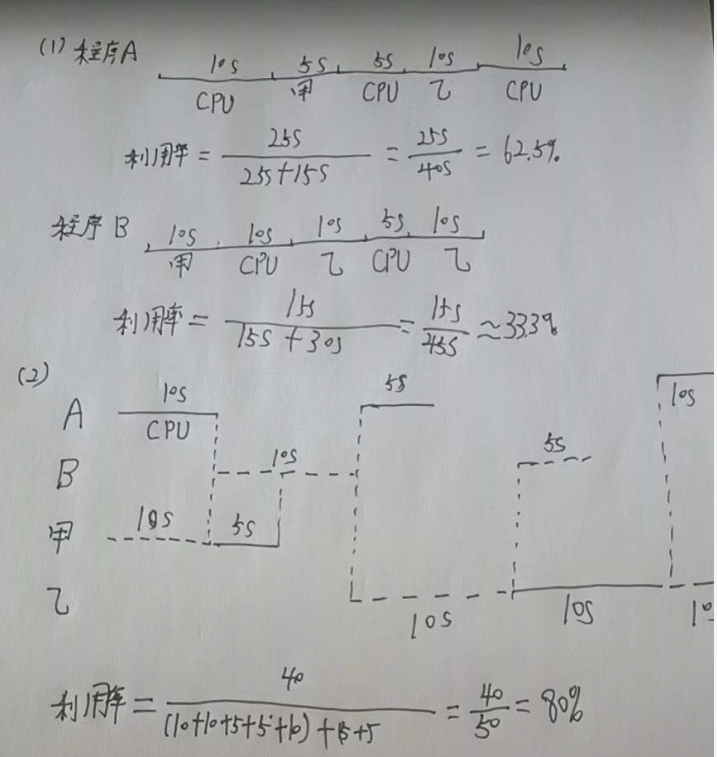 (1) 程序A 10s 5s 5s 10s 10s
CPU 甲 CPU 乙 CPU
利用率 = 25s / 25s+15s = 25s / 40s = 62.5%
程序B 10s 10s 10s 5s 10s
甲 CPU 乙 CPU 乙
利用率 = 15s / 15s+30s = 15s / 45s ≈ 33.3%
(2)
A 10s 5s 10s
CPU
B 10s 5s
甲 10s 5s
乙 10s 10s
利用率 = 40 / (10+10+5+5+10)+5+5 = 40 / 50 = 80%